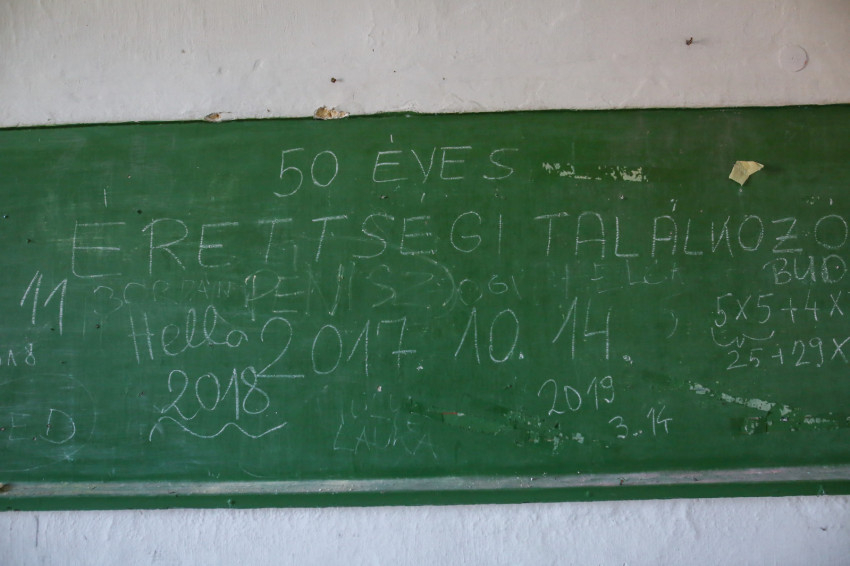 50 ÉVES
ÉRETTSÉGI TALÁLKOZÓ
BUD
11
5x5+4x
Hello 2017. 10. 14.
25+29x
2018
2019
3..14
LAURA
ED